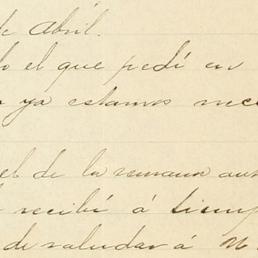 de Abril.
lo el que pedí en
ya estamos nece
el de la semana an
recibí á tiemp
de saludar á M